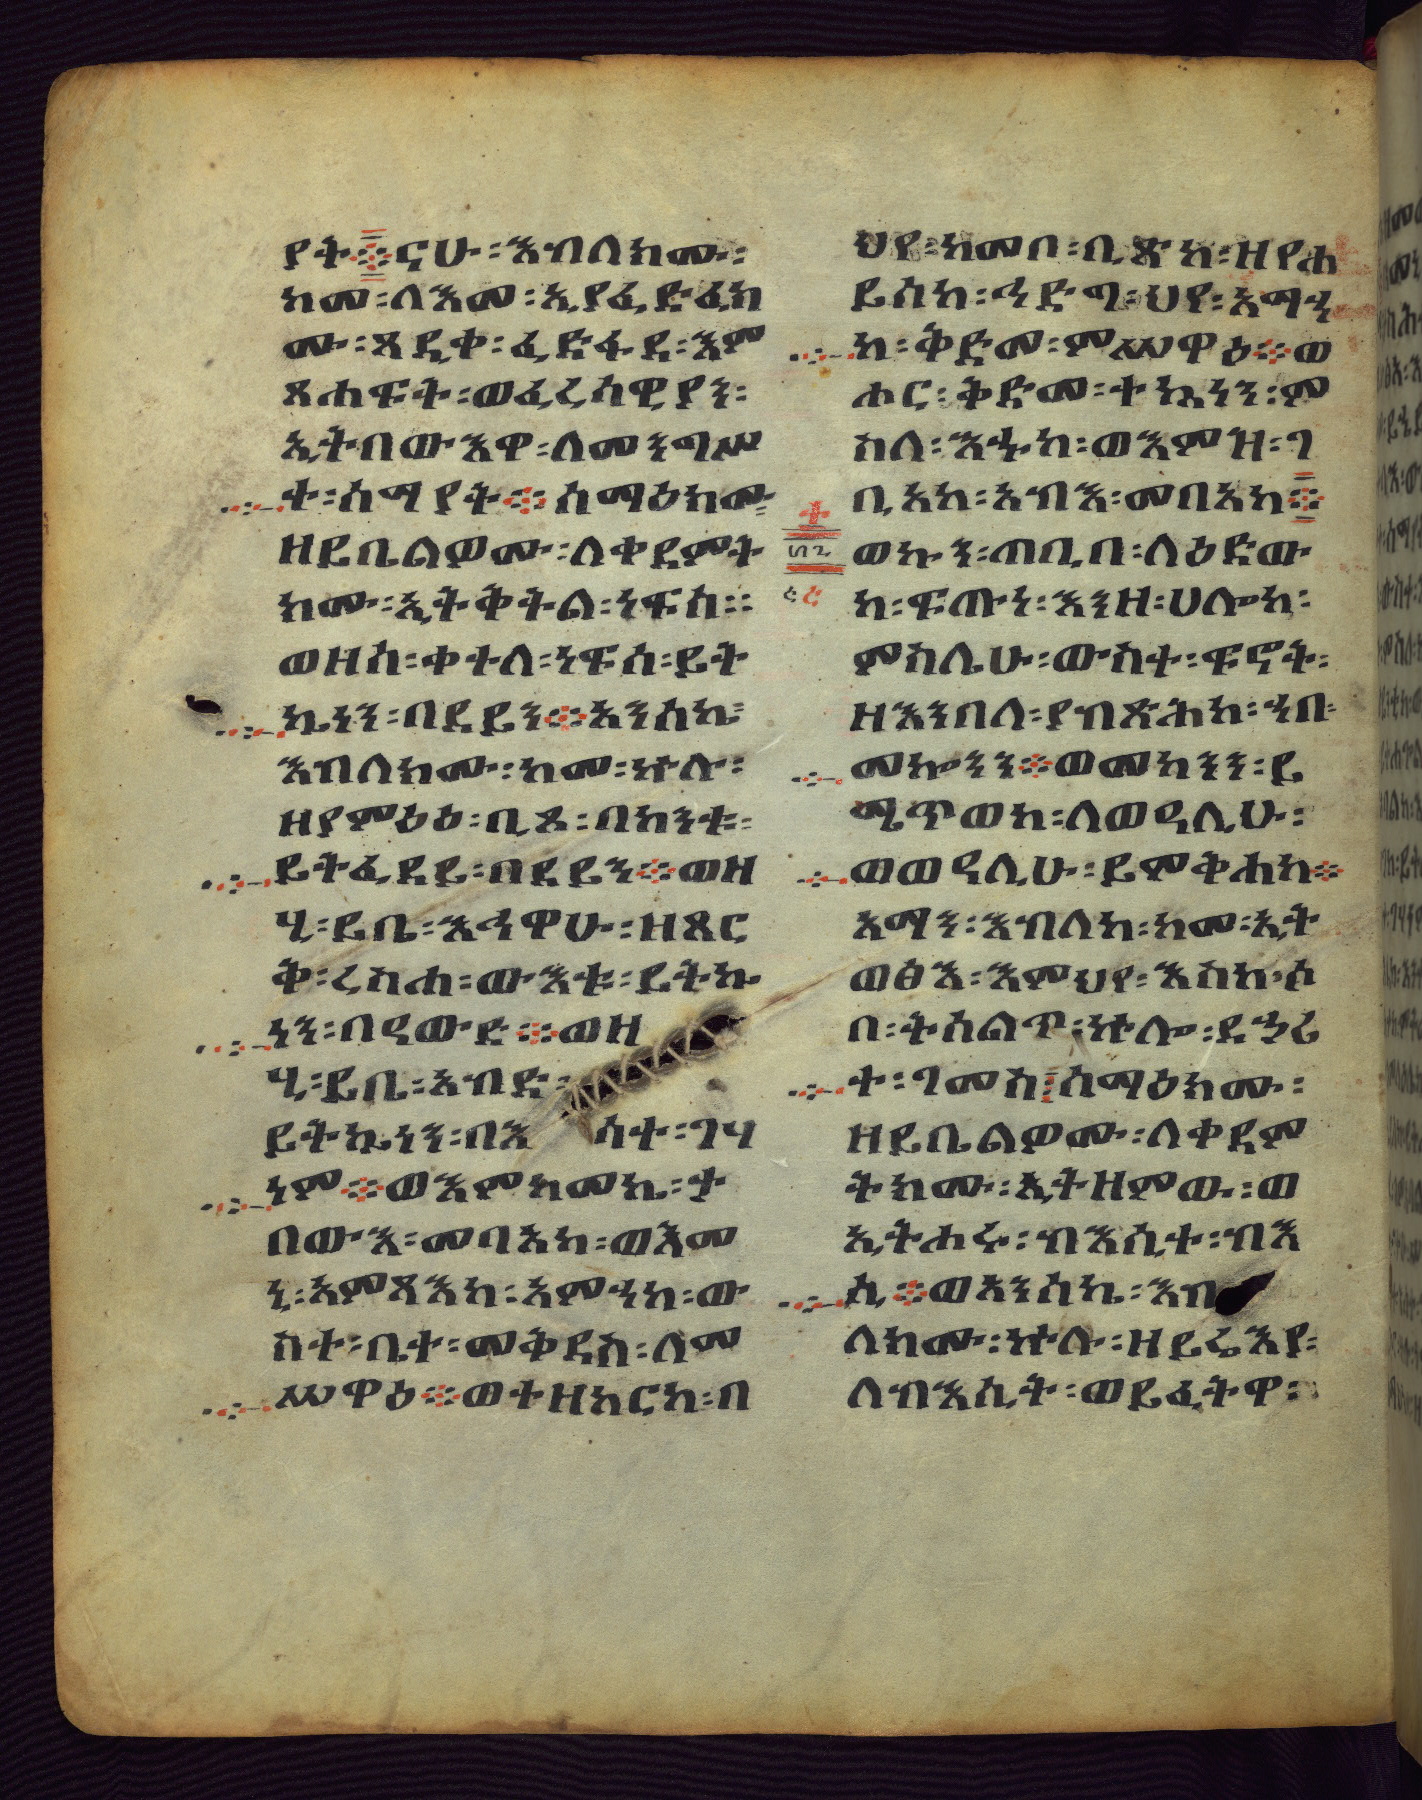 ያት፨ርሁ፡እብለክሙ፡
ከመ፡ለእመ፡ኢያፈድፈክ
ሙ፡ጸዲቀ፡ፈድፋደ፡እም
ጸሐፍት፡ወፈሪሳዊያን፡
ኢትበውእዋ፡ለመንግሥ
ተ፡ሰማያት፨ሰማዕክሙ፡
ዘይቤልዎሙ፡ለቀደምት
ከሙ፡ኢትቅትል፡ነፍሰ፡
ወዘሰ፡ቀተለ፡ነፍሰ፡ይት
ኴነን፡በደይን፨አንሰኬ፡
እብለክሙ፡ከመ፡ኵሉ፡
ዘያምዕዕ፡ቢጾ፡በከንቱ፡
ይትፌደይ፡በደይን፨ወዘ
ሂ፡ይቤ፡እኅዋሁ፡ዘጸር
ቅ፡ረስሐ፡ውእቱ፡ይትኴ
ነን፡በዓውድ፨ወዘ
ሂ፡ይቤ፡አብድ፡
ይትኴነን፡በእ ሳተ፡ገሃ
ነም፨ወእምከመኬ፡ታ
በውእ፡መባአከ፡ወእመ
ኒ፡አምጻእከ፡አምኃከ፡ው
ስተ፡ቤተ፡መቅደስ፡ለም
ሥዋዕ፨ወተዘከርከ፡በ
ህየ፡ከመቦ፡ቢጽከ፡ዘየሐ
ይሰከ፡ኅድግ፡ህየ፡አማኅ
ከ፡ቅድመ፡ምሥዋዕ፨ወ
ሐር፡ቅድመ፡ተኳነን፡ም
ስለ፡እኁከ፡ወእምዝ፡ገ
ቢአከ፡አብእ፡መባአከ፨
ወኩን፡ጠቢበ፡ለዕድው
ከ፡ፍጡነ፡እንዘ፡ሀሎከ፡
ምስሌሁ፡ውስተ፡ፍኖት፡
ዘእንበለ፡ያብጽሕከ፡ኀበ፡
መኰንን፨ወመኰንን፡ይ
ሜጥወከ፡ለወዓሊሁ፡
ወወዓሊሁ፡ይምቅሐከ፨
አማን፡እብለከ፡ከመ፡ኢት
ወፅእ፡እምህየ፡እስከ፡ሶ
በ፡ትሰልጥ፡ኵሎ፡ደኃሪ
ተ፡ገመስ፡ሰማዕክሙ፡
ዘይቤልዎሙ፡ለቀደም
ትክሙ፡ኢትዘምው፡ወ
ኢትሐሩ፡ብእሲተ፡ብእ
ሲ፨ወአንሰኬ፡እብ
ለክሙ፡ኵሉ፡ዘይሬእያ፡
ለብእሲት፡ወይፈትዋ፡